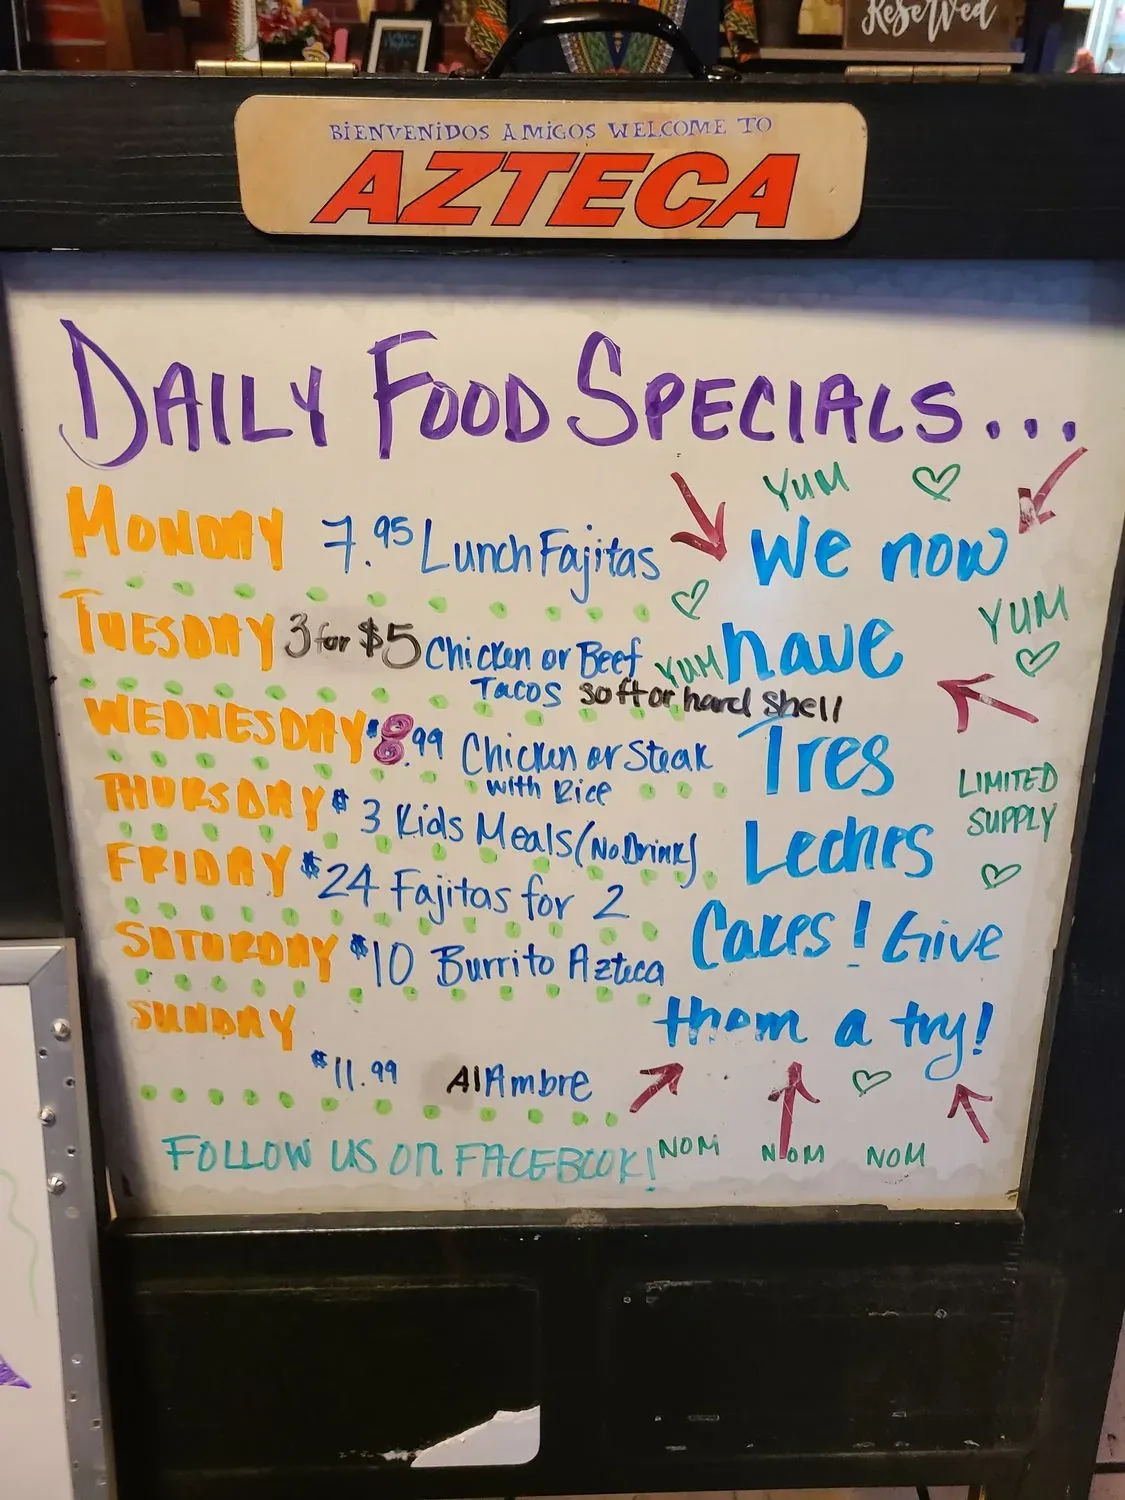 Reserved
BIENVENIDOS AMIGOS WELCOME TO
AZTECA
DAILY FOOD SPECIALS...
MONDAY 7.95 Lunch Fajitas
TUESDAY 3 for $5 Chicken or Beef
Tacos soft or hard shell
WEDNESDAY $8.99 Chicken or Steak
with Rice
THURSDAY $3 Kids Meals (No Drink)
FRIDAY $24 Fajitas for 2
SATURDAY $10 Burrito Azteca
SUNDAY
$11.99 AlAmbre
FOLLOW US ON FACEBOOK!
YUM
We now
YUM
YUM have
Tres
LIMITED
SUPPLY
Leches
Cakes! Give
them a try!
NOM NOM NOM